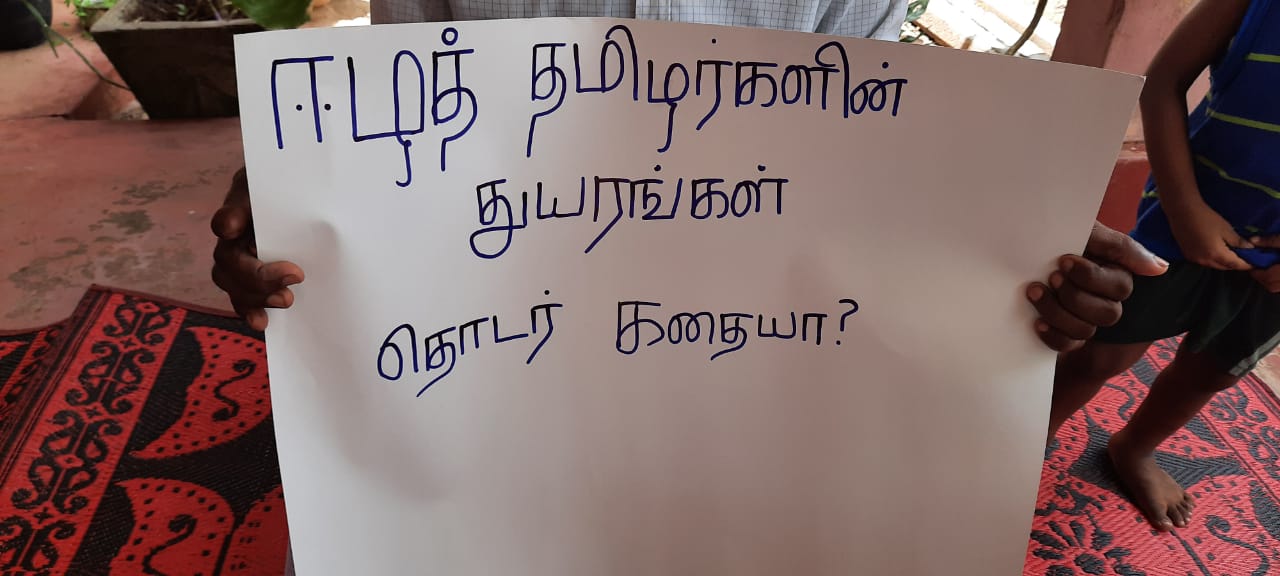 ஈழத் தமிழர்களின்
துயரங்கள்
தொடர் கதையா?